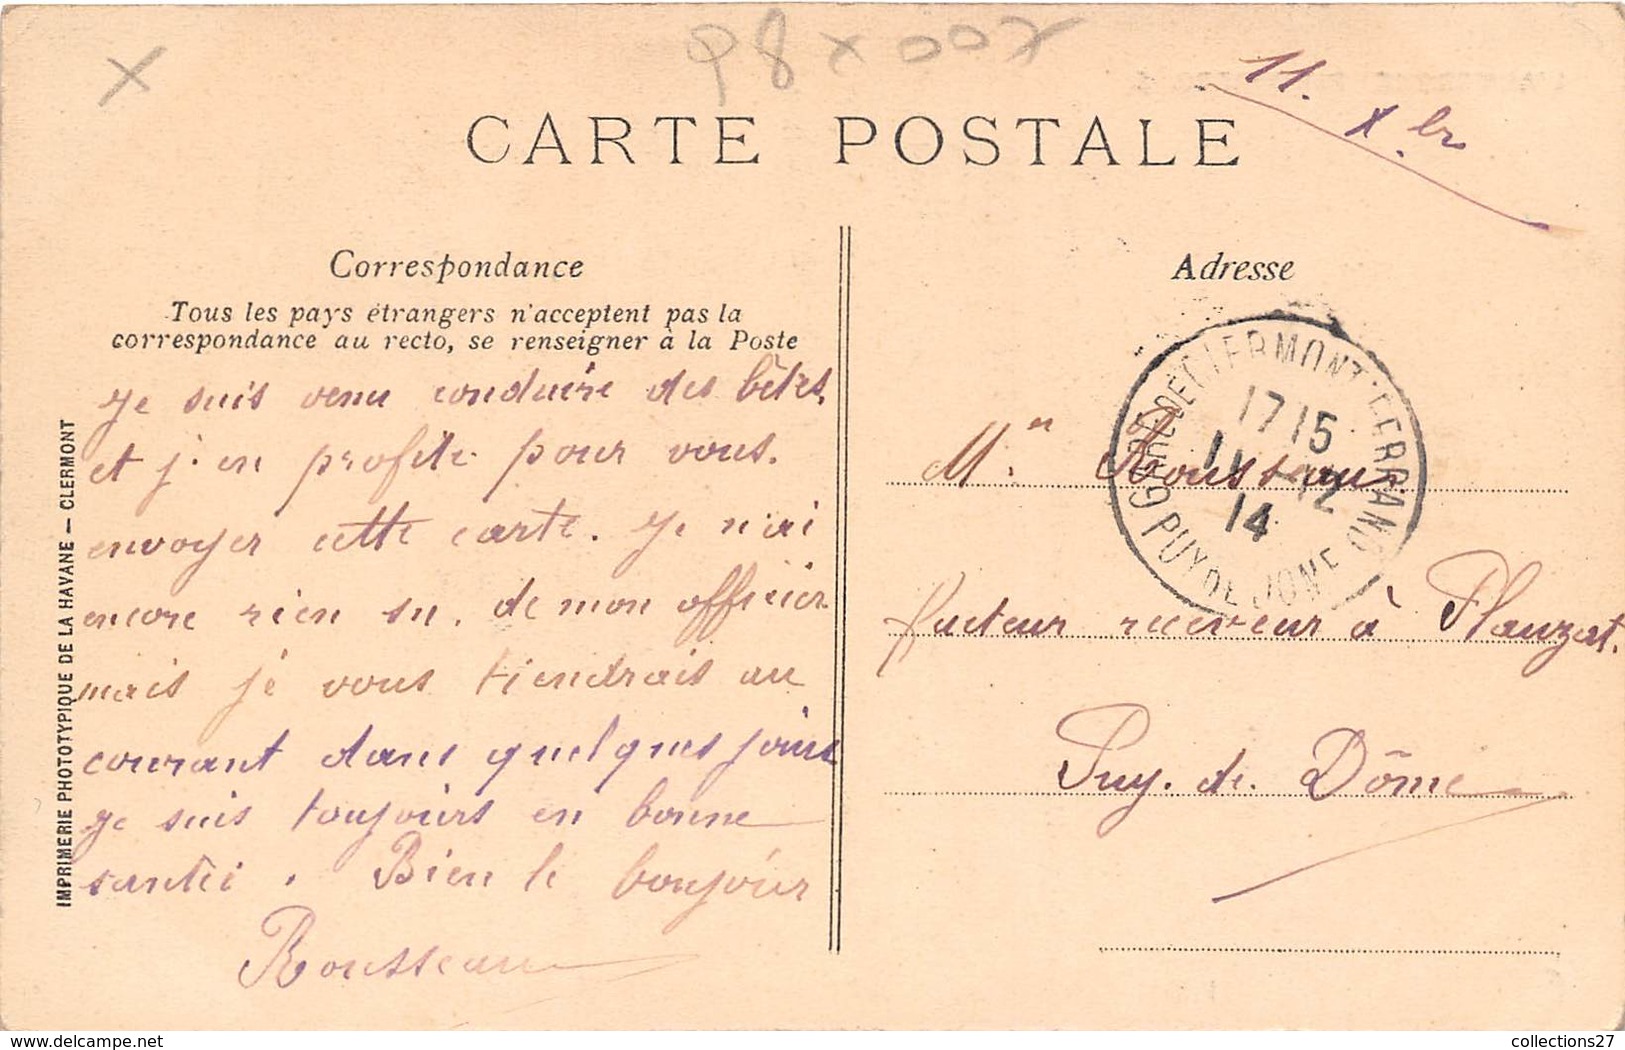 98 x 007
11. Xbr
CARTE POSTALE
Correspondance
Tous les pays étrangers n'acceptent pas la
correspondance au recto, se renseigner à la Poste
Je suis venu conduire des bêtes,
et j'en profite pour vous.
envoyer cette carte. Je n'ai
encore rien su. de mon officier
mais je vous tiendrais au
courant dans quelques jours
je suis toujours en bonne
santéi. Bien le bonjour
Rousseau
IMPRIMERIE PHOTOTYPIQUE DE LA HAVANE – CLERMONT
Adresse
GARE DE CLERMONT-FERRAND
17 15
11 -12
14
PUY DE DOME
Mr. Rousseau.
facteur receveur à Plauzat.
Puy. de. Dôme
collections27